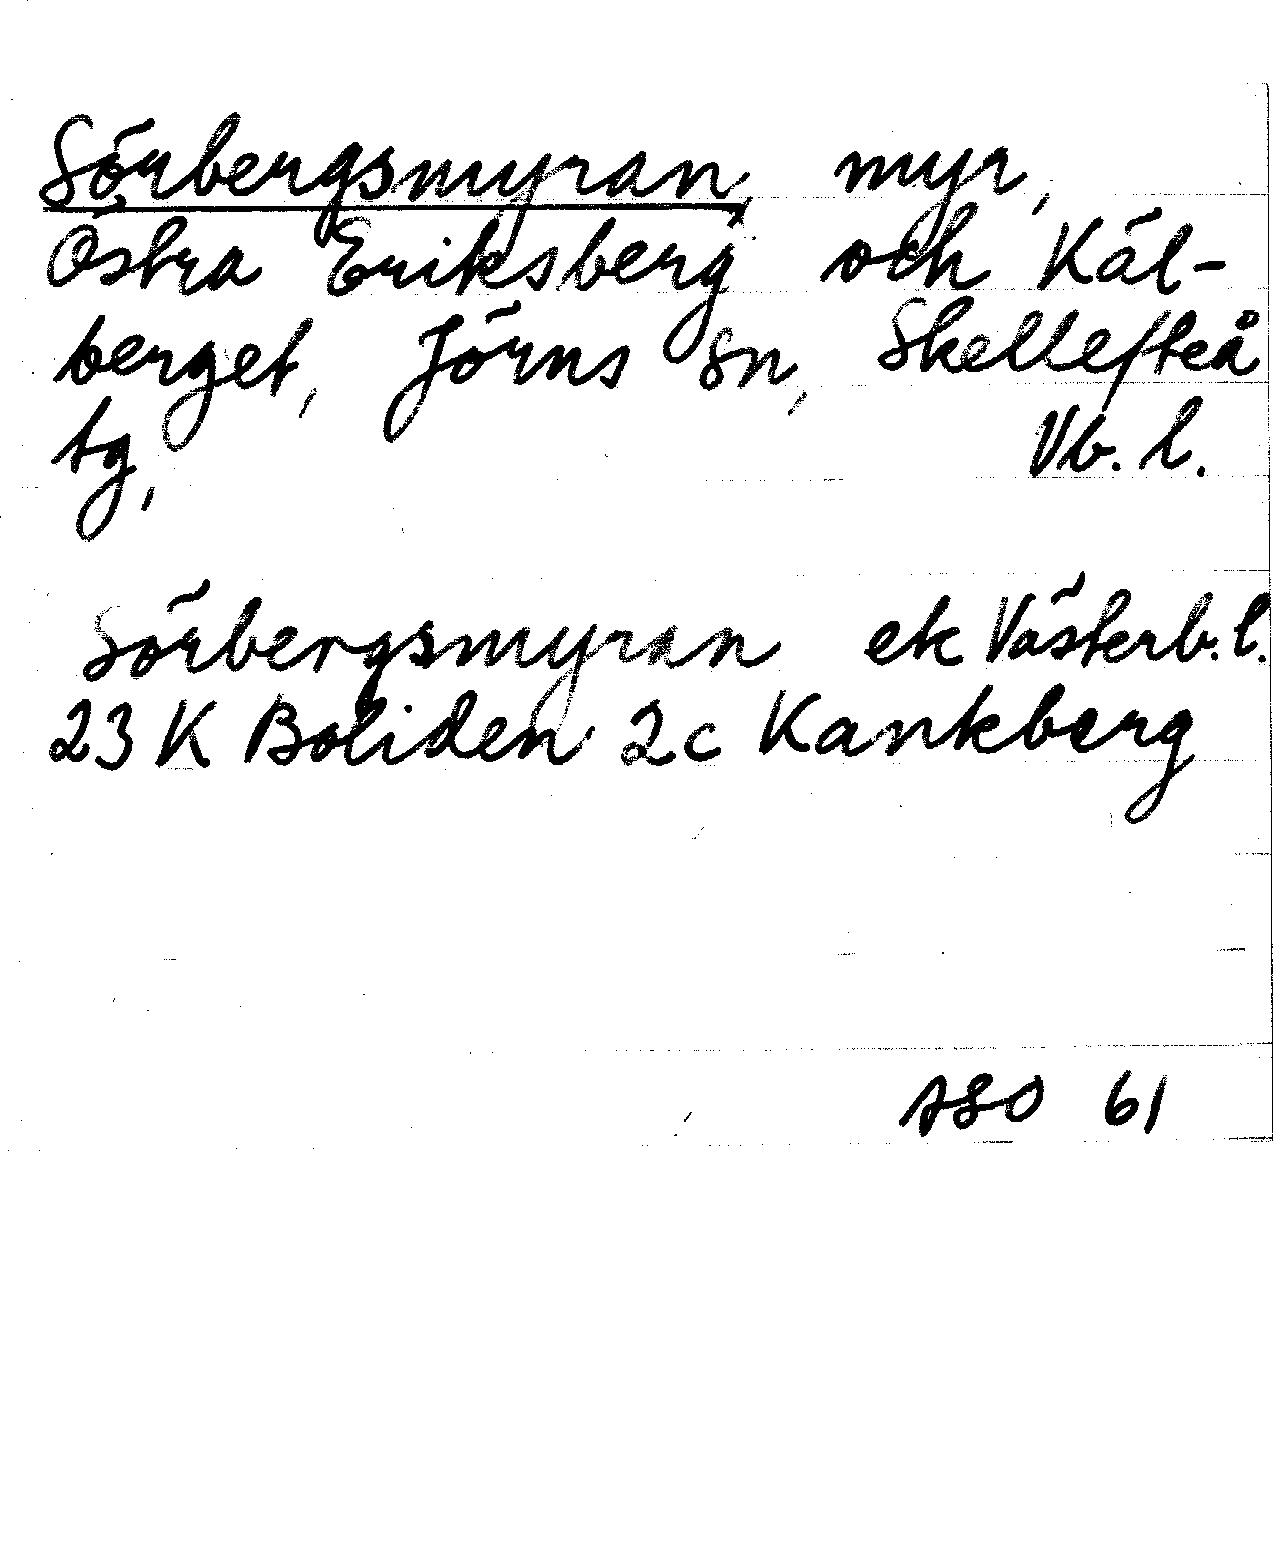 Sörbergsmyran, myr,
Östra Eriksberg och Käl-
berget, Jörns sn, Skellefteå
tg, Vb. l.
Sörbergsmyran ek Västerb. l.
23 K Boliden 2c Kankberg
ASO 61